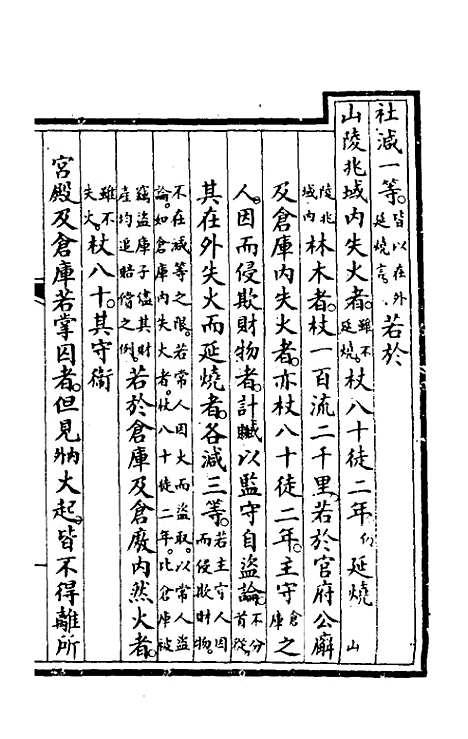 社減一等皆以在外延燒言若於
山陵兆域内失火者雖不延燒杖八十徒二年仍延燒山
陵兆域内林木者杖一百流二千里若於官府公廨
及倉庫内失火者亦杖八十徒二年主守倉庫之
人因而侵欺財物者計贓以監守自盜論不分首從
其在外失火而延燒者各減三等若主守人因而侵欺財物
不在減等之限若常人因火而盜取以常人盜論如倉庫内失火者杖八十徒二年比倉庫被
竊盜庫子儘其財產均追賠償之例若於倉庫及倉廒内然火者
雖不失火杖八十其守衛
宮殿及倉庫若掌囚者但見内外火起皆不得離所